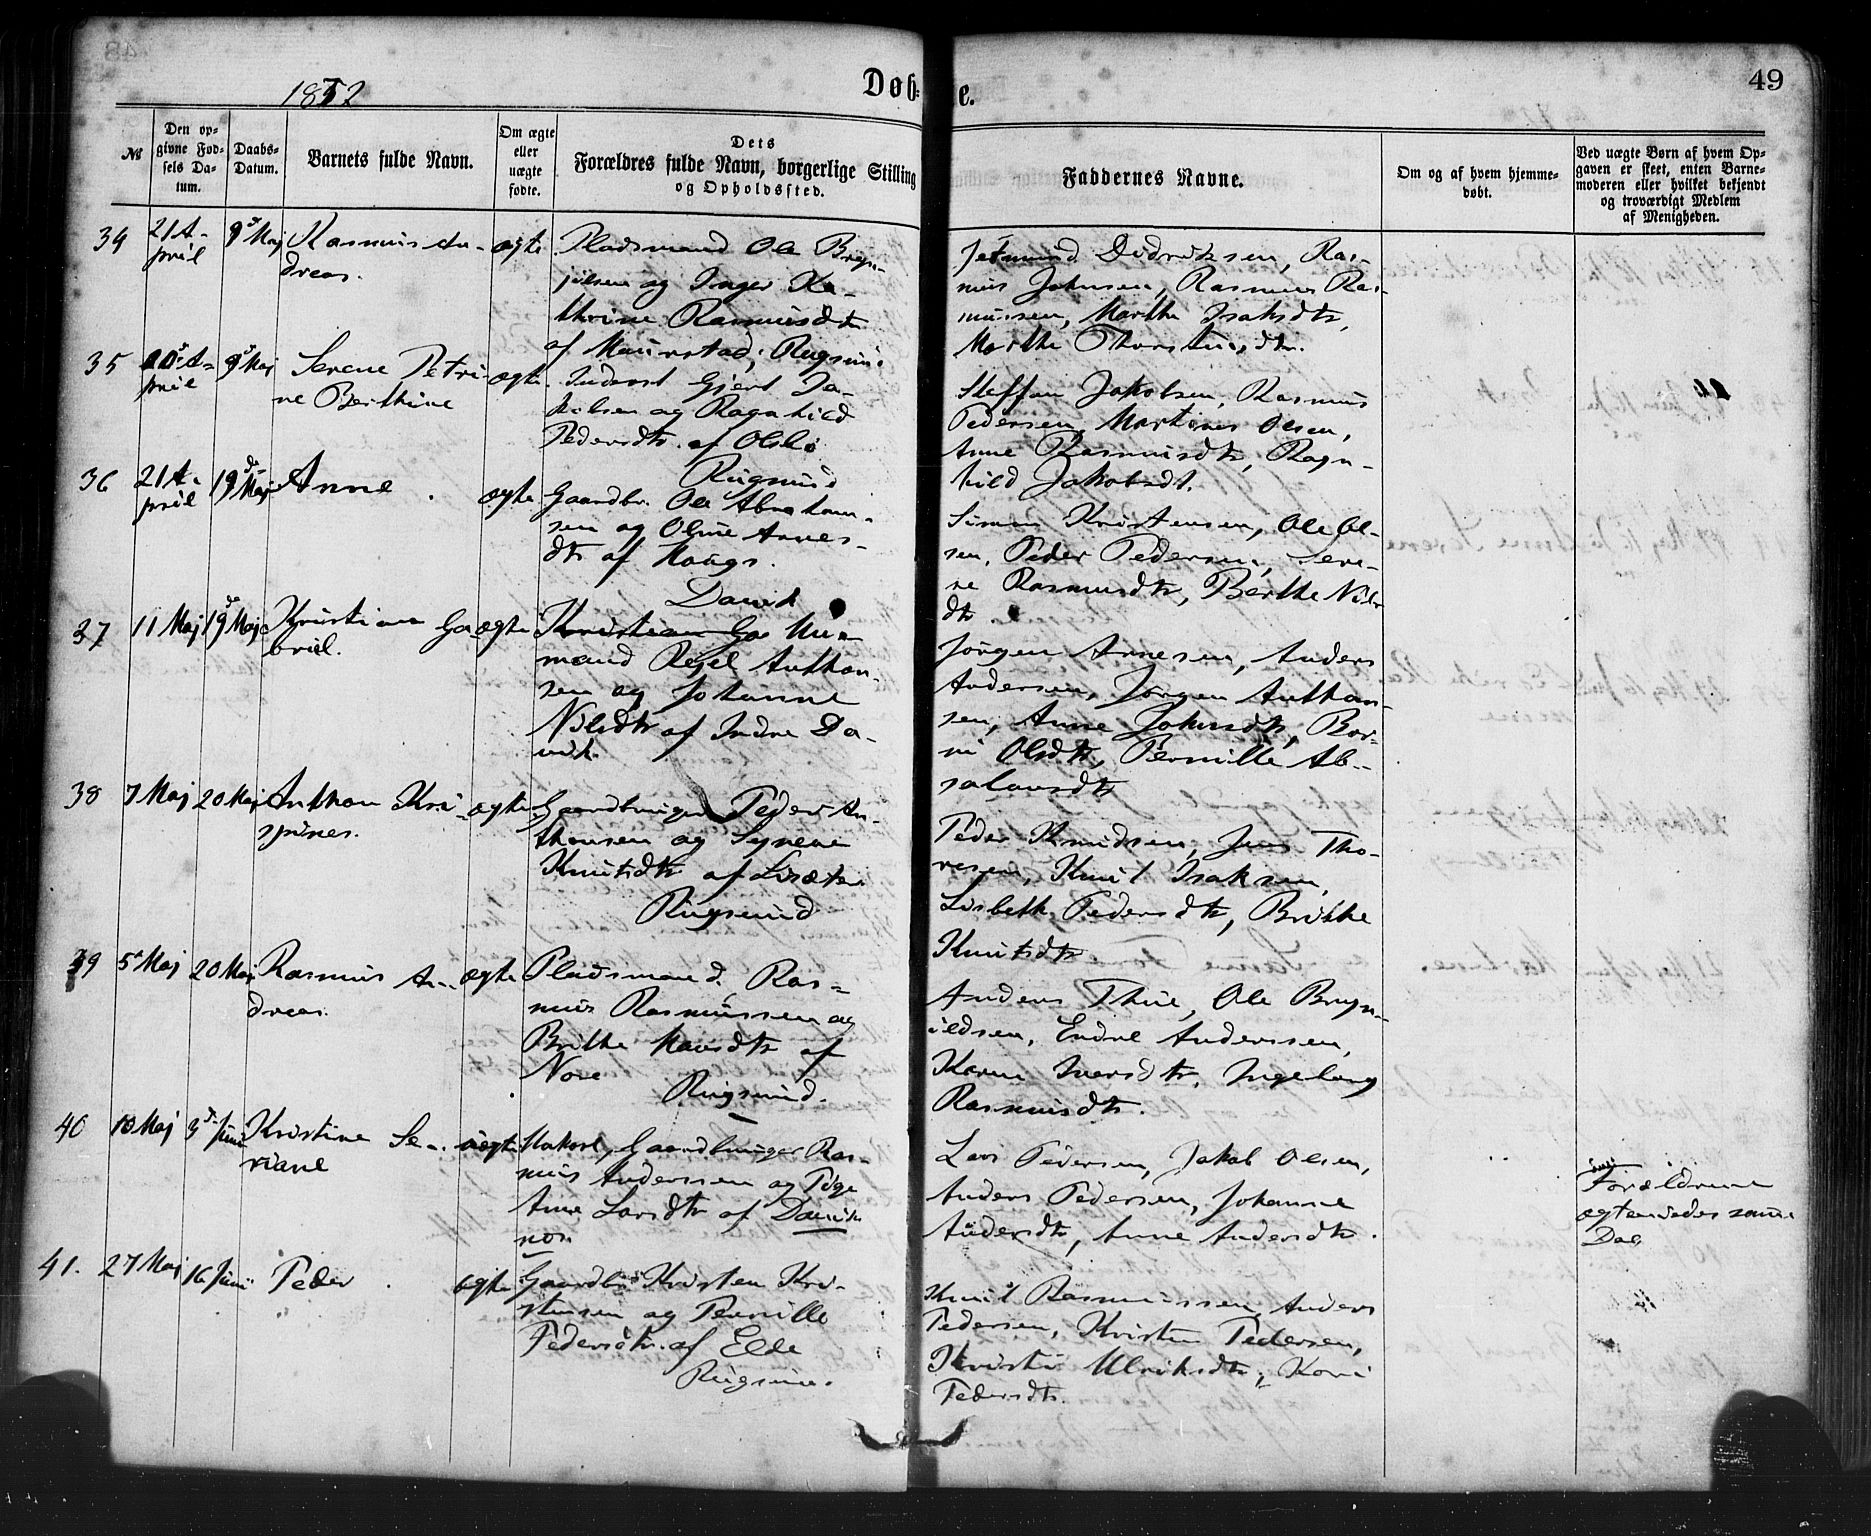 1872
Døbte.
49
№
Den opgivne Fødsels Datum.
Daabs-Datum.
Barnets fulde Navn.
Om ægte eller uægte fødte.
Dets Forældres fulde Navn, borgerlige Stilling og Opholdssted.
Faddernes Navne.
Om og af hvem hjemmedøbt.
Ved uægte Børn af hvem Opgaven er skeet, enten Barnemoderen eller hvilket bekjendt og troværdigt Medlem af Menigheden.
34
21 April
9 Maj
Rasmus Andreas.
ægte
Pladsmand Ole Bryn-
jelsen og Inger Ka-
thrine Rasmusdtr
af Maurstad, Rugsund
Rasmus Johnsen, Rasmus Ras-
mussen, Marthe Isaksdtr,
Marthe
35
April
9 Maj
Serene Petri-
ne Berthine
ægte
Inderst Gjert Ja-
kobsen og Ragnhild
Pedersdtr. af
Rugsund
Steffen Jakobsen, Rasmus
Pedersen, Martinus Olsen,
Anne Rasmusdtr, Ragn-
hild Jakobsdt.
36
21 A-
pril
19 Maj
Anne
ægte
Gaardbr. Ole Abraham-
sen og Oline Arnes-
dtr af Haugs.
Davik
Simon Kristensen, Ole Ol-
sen, Peder Pedersen, Sere-
ne Rasmusdtr, Berthe Nils-
dtr
37
11 Maj
19 Maj
Kristian Ga-
briel.
ægte
Kristian Ga Huus-
mand Anthon-
sen og Johanne
Nilsdtr af Indre Da-
vik.
Jørgen Arnesen, Anders
Andersen, Jørgen Anthon-
sen, Anne Johnsdtr, Ber-
ni Olsdtr, Pernille Ab-
salonsdtr
38
7 Maj
20 Maj
Anthon Kri-
spinus.
ægte
Gaardbruger Peder An-
thonsen og Synneve
Knutsdtr af Lisæter
Rugsund
Peder Knudsen, Jens Tho-
resen, Knut Isaksen,
Lisbeth Pedersdtr, Brithe
Knutsdtr
39
5 Maj
20 Maj
Rasmus An-
dreas.
ægte
Pladsmand Ras-
mus Rasmussen og
Brithe Monsdtr af
Nore
Rugsund.
Anders Thue, Ole Bryn-
ildsen, Endre Anderssen,
Karen Iversdtr, Ingeborg
Rasmusdtr.
40
10 Maj
3 Juni
Kristine Se-
riane
uægte
Gaardbruger Ras-
mus Anderssen og Pige
Anne Larsdtr af Davik-
nes
Lars Pedersen, Jakob Olsen,
Anders Pedersen, Johanne
Andersdtr, Anne Andersdtr.
Forældrene
ægteviedes samme
Dag
41.
27 Maj
16 Juni
Peder
ægte
Gaardbr Kristen Kri-
stensen og Pernille
Pedersdtr. af Elde
Rugsund.
Knut Rasmussen, Anders
Pedersen, Kristen Pedersen,
Kristi Ulriksdtr, Kari
Pedersdtr.